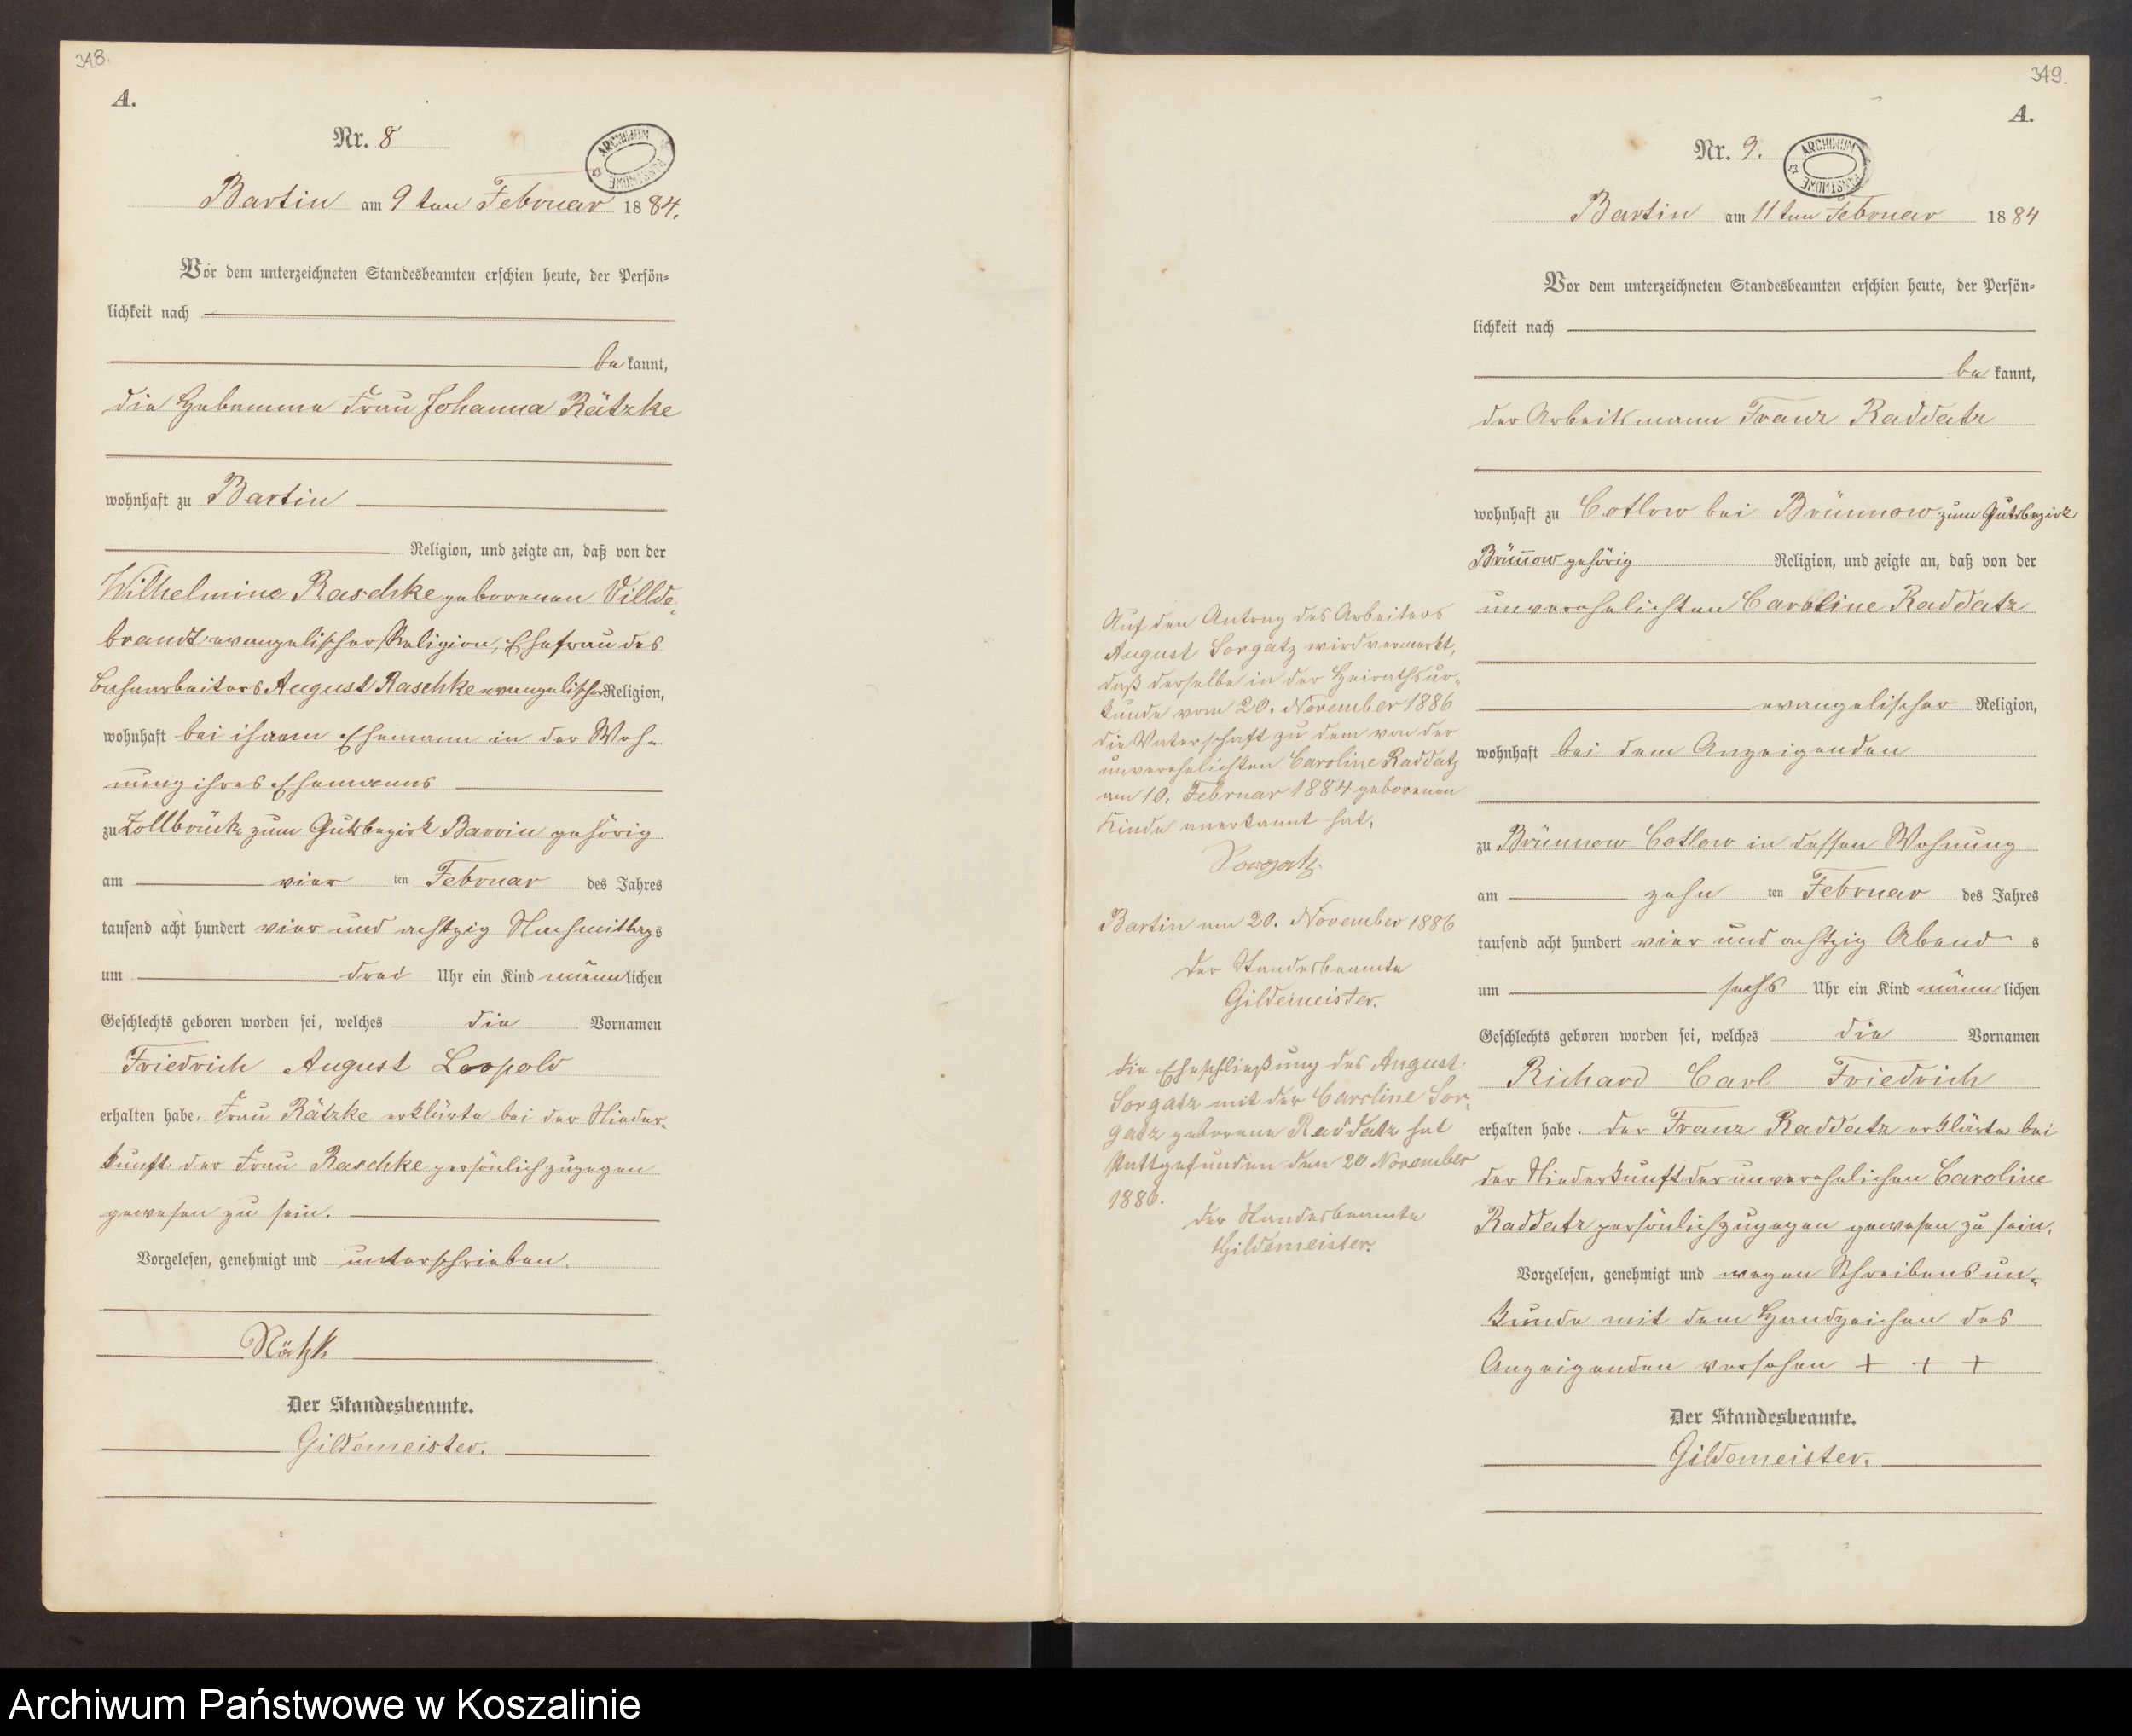 348.
A.
Nr. 8
ARCHIWUM PAŃSTWOWE
Bartin am 9ten Februar 1884.
Vor dem unterzeichneten Standesbeamten erschien heute, der Persön=
lichkeit nach
bekannt,
die Hebamme Frau Johanna Rätzke
wohnhaft zu Bartin
Religion, und zeigte an, daß von der
Wilhelmine Raschke geborenen Villde=
brandt evangelischer Religion, Ehefrau des
Bahnarbeiters August Raschke evangelischer Religion,
wohnhaft bei ihrem Ehemann in der Woh=
nung ihres Ehemanns
zu Zollbrück zum Gutsbezirk Barvin gehörig
am vier ten Februar des Jahres
tausend acht hundert vier und achtzig Nachmittags
um drei Uhr ein Kind männlichen
Geschlechts geboren worden sei, welches die Vornamen
Friedrich August Leopold
erhalten habe. Frau Rätzke erklärte bei der Nieder=
kunft der Frau Raschke persönlich zugegen
gewesen zu sein.
Vorgelesen, genehmigt und unterschrieben.
Rätzke
Der Standesbeamte.
Gildemeister.
349.
A.
Nr. 9.
ARCHIWUM PAŃSTWOWE
Bartin am 11ten Februar 1884
Vor dem unterzeichneten Standesbeamten erschien heute, der Persön=
lichkeit nach
bekannt,
der Arbeitsmann Franz Raddatz
wohnhaft zu Cotlow bei Brünnow zum Gutsbezirk
Brünnow gehörig Religion, und zeigte an, daß von der
unverehelichten Caroline Raddatz
evangelischer Religion,
wohnhaft bei dem Anzeigenden
zu Brünnow Cotlow in dessen Wohnung
am zehn ten Februar des Jahres
tausend acht hundert vier und achtzig Abends
um sechs Uhr ein Kind männlichen
Geschlechts geboren worden sei, welches die Vornamen
Richard Carl Friedrich
erhalten habe. Der Franz Raddatz erklärte bei
der Niederkunft der unverehelichen Caroline
Raddatz persönlich zugegen gewesen zu sein.
Vorgelesen, genehmigt und wegen Schreibensun=
kunde mit dem Handzeichen des
Anzeigenden versehen + + +
Der Standesbeamte.
Gildemeister.
Auf den Antrag des Arbeiters
August Sorgatz wird vermerkt,
daß derselbe in der Heirathsur=
kunde vom 20. November 1886
die Vaterschaft zu dem von der
unverehelichten Caroline Raddatz
am 10. Februar 1884 geborenen
Kinde anerkannt hat.
Sorgatz.
Bartin am 20. November 1886
Der Standesbeamte
Gildemeister.
Die Eheschließung des August
Sorgatz mit der Caroline Sor=
gatz geborene Raddatz hat
stattgefunden den 20. November
1886.
Der Standesbeamte
Gildemeister.
Archiwum Państwowe w Koszalinie